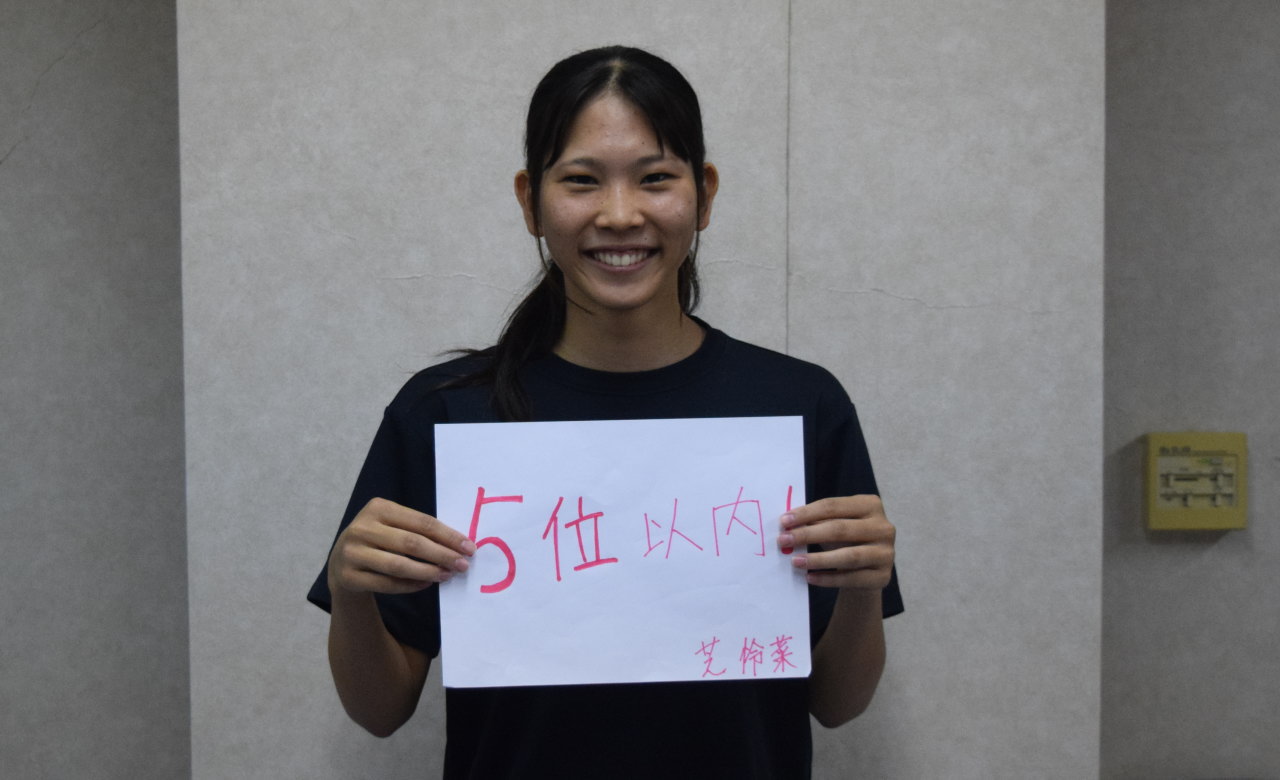 5位以内!
芝 怜菜